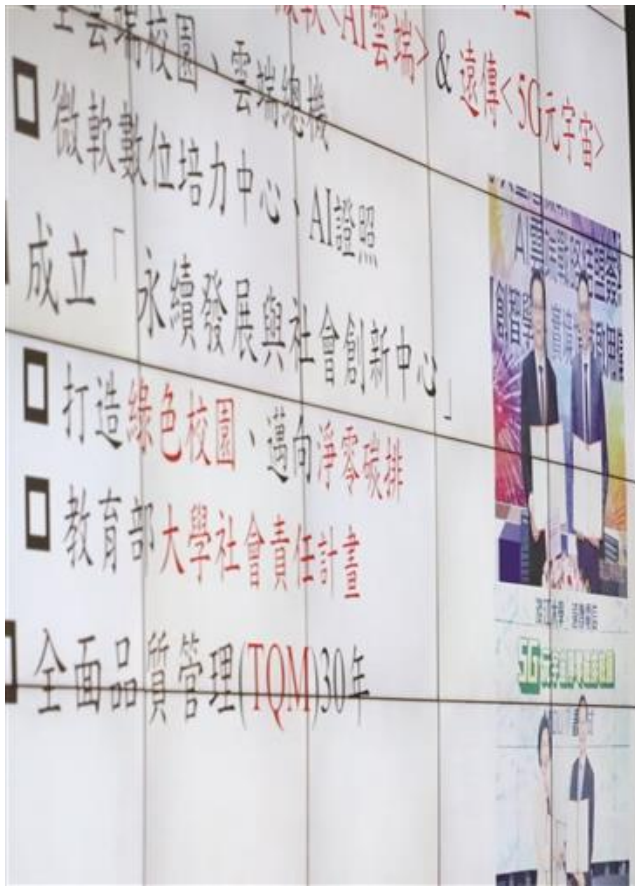 軟<AI雲端> & 遠傳<5G元宇宙>
全雲端校園、雲端總機
微軟數位培力中心、AI證照
成立「永續發展與社會創新中心」
打造綠色校園、邁向淨零碳排
教育部大學社會責任計畫
全面品質管理(TQM)30年
5G